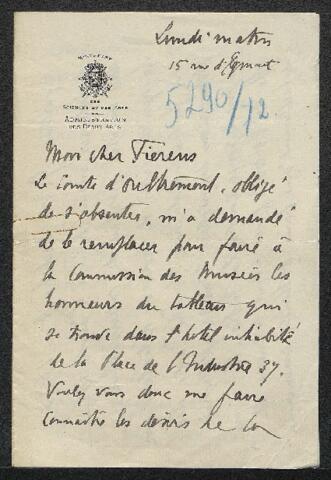 Lundi matin
15 rue d'Egmont
MINISTÈRE
DES
SCIENCES ET DES ARTS
ADMINISTRATION
DES BEAUX-ARTS
5290/12
Mon cher Fierens
Le Comte d'Oultremont, obligé
de s'absenter, m'a demandé
de le remplacer pour faire à
la Commission des Musées les
honneurs du tableau qui
se trouve dans l'hôtel inhabité
de la Place de l'Industrie 37.
Voulez vous donc me faire
connaître les désirs de la